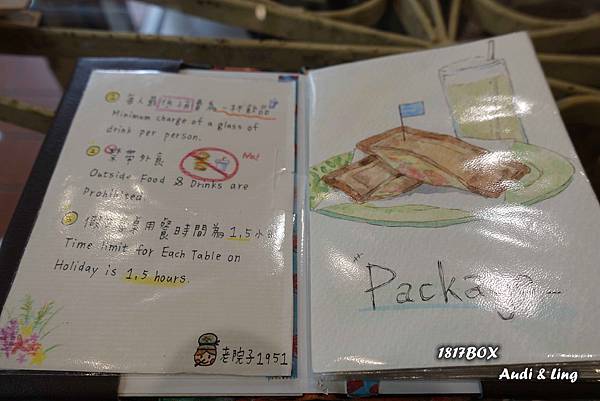 每人最低消費為一杯飲品
Minimum charge of a glass of
drink per person.
禁帶外食
No!
Outside Food & Drinks are
Prohibited
假 桌用餐時間為1.5小
Time limit for Each Table on
Holiday is 1.5 hours.
老院子1951
"Package
1817BOX
Audi & Ling